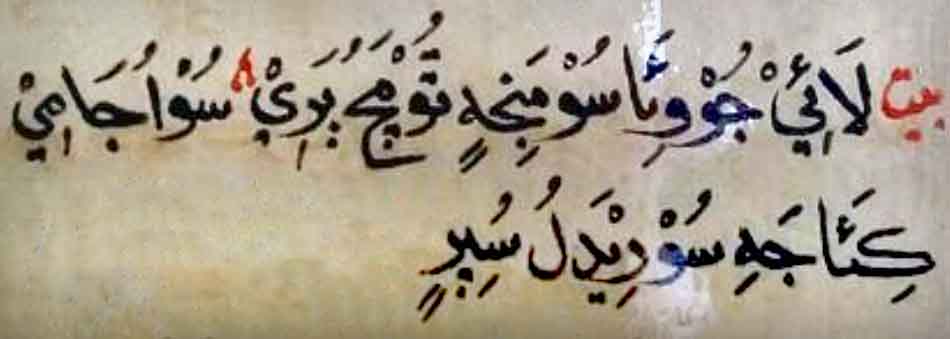 بيت لَائِيْ جُوْ وِئَا سُوْ مَنِجهٍ تُوْ مَچُ بَرِيْ ۸ سُوْ اُجَامِيْ
كِئَا جَهِ سُوْ رِيْدَلُ سُبِرٍ